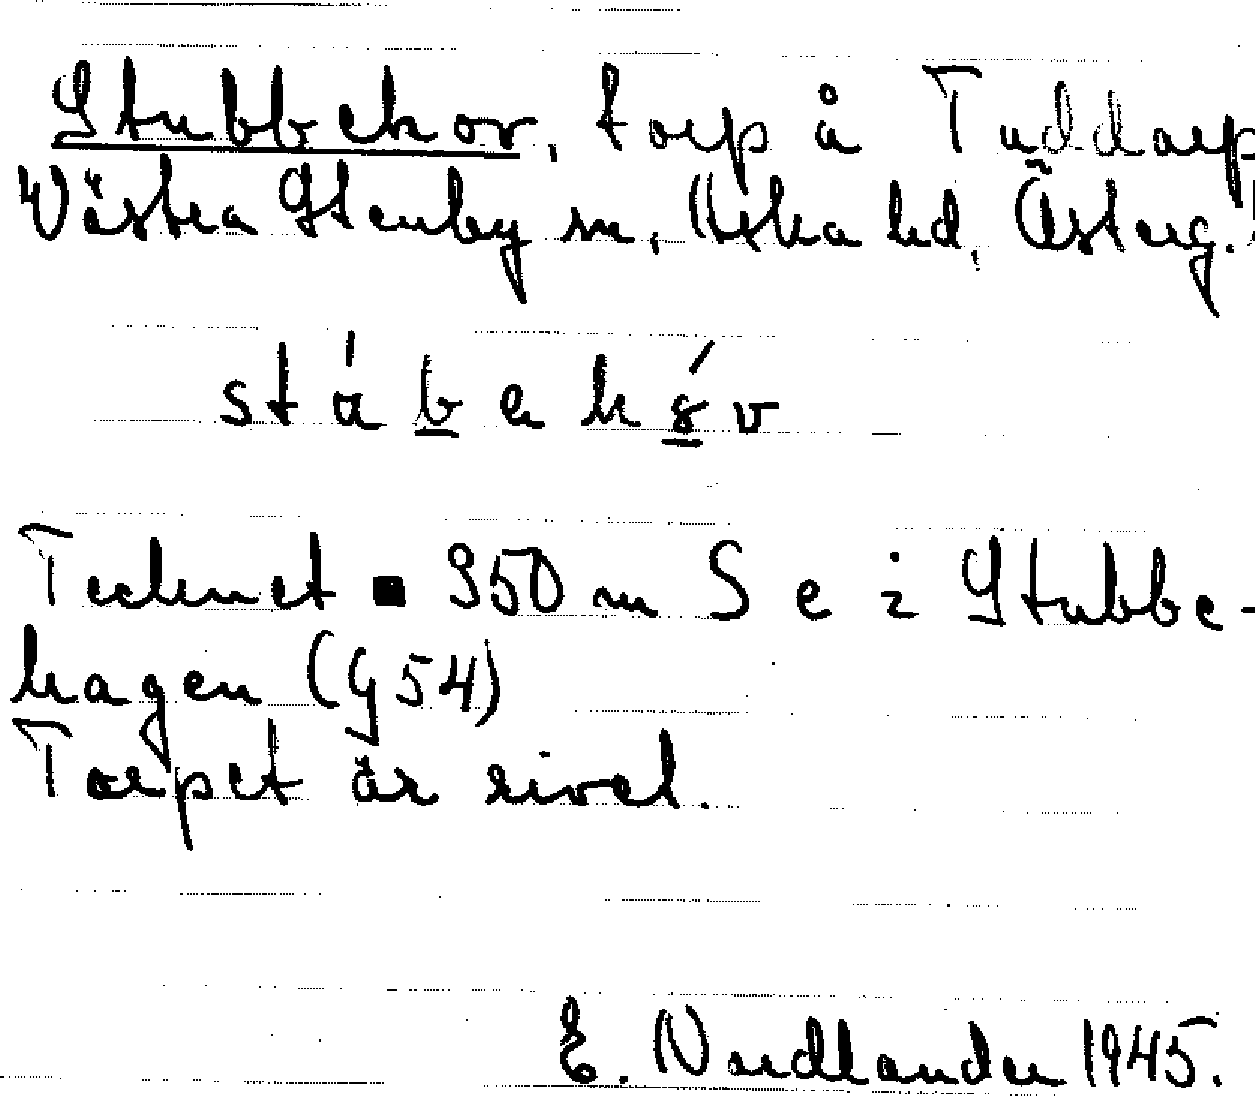 Stubbekov, torp å Tuddarp
Västra Stenby sn, Aska hd, Österg.
stábekóv
Tecknet ■ 950 m S e i Stubbe-
hagen (G54)
Torpet är rivet.
E. Nordlander 1945.